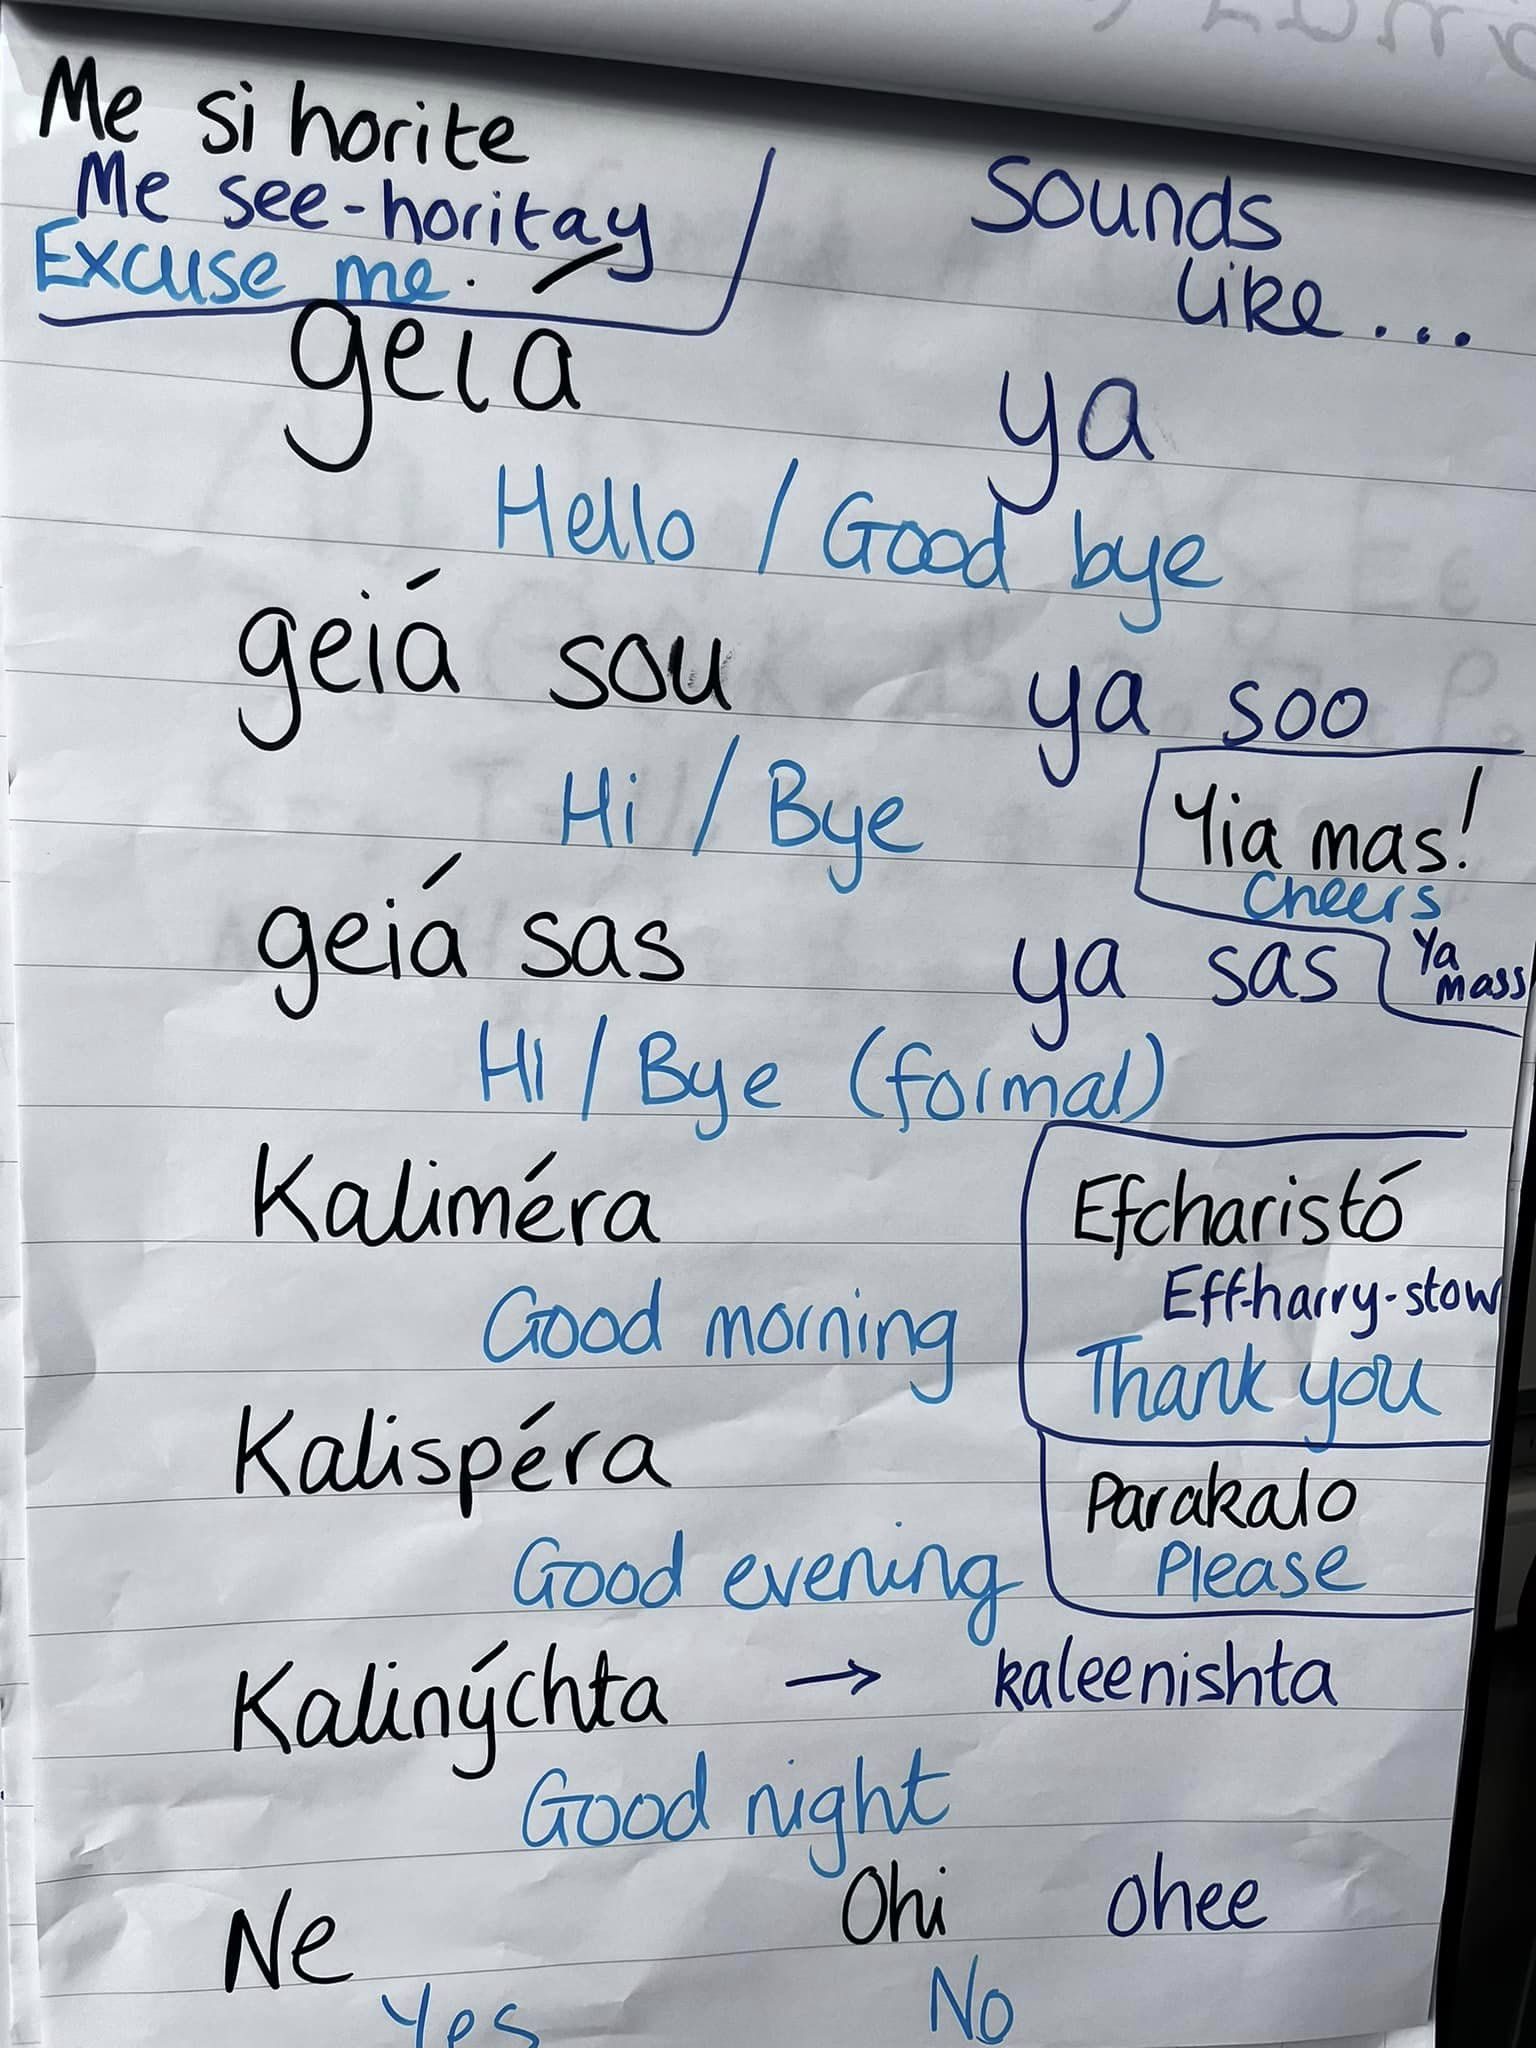 Me si horite
Me see-horitay
Excuse me.
Sounds
like...
geiá
ya
Hello / Good bye
geiá sou
ya soo
Hi / Bye
Yia mas!
Cheers
Ya
mass
geiá sas
ya sas
Hi / Bye (formal)
Kaliméra
Good morning
Efcharistó
Eff-harry-stow
Thank you
Kalispéra
Good evening
Parakalo
Please
Kalinýchta → kaleenishta
Good night
Ne
Yes
Ohi ohee
No